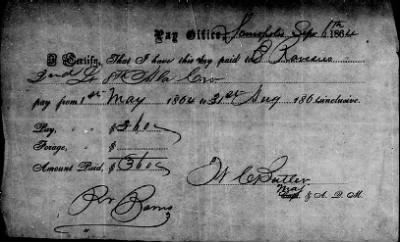 Pay Office, Demopolis Sep 6th 1864
I Certify, That I have this day paid
2nd Lt 8th Ala Cav
pay from 1st May 1864 to 31st Aug 1864 inclusive.
Pay, $ 360
Forage, $
Amount Paid, $ 360
W C Butler
Maj
Capt. & A. D. M.